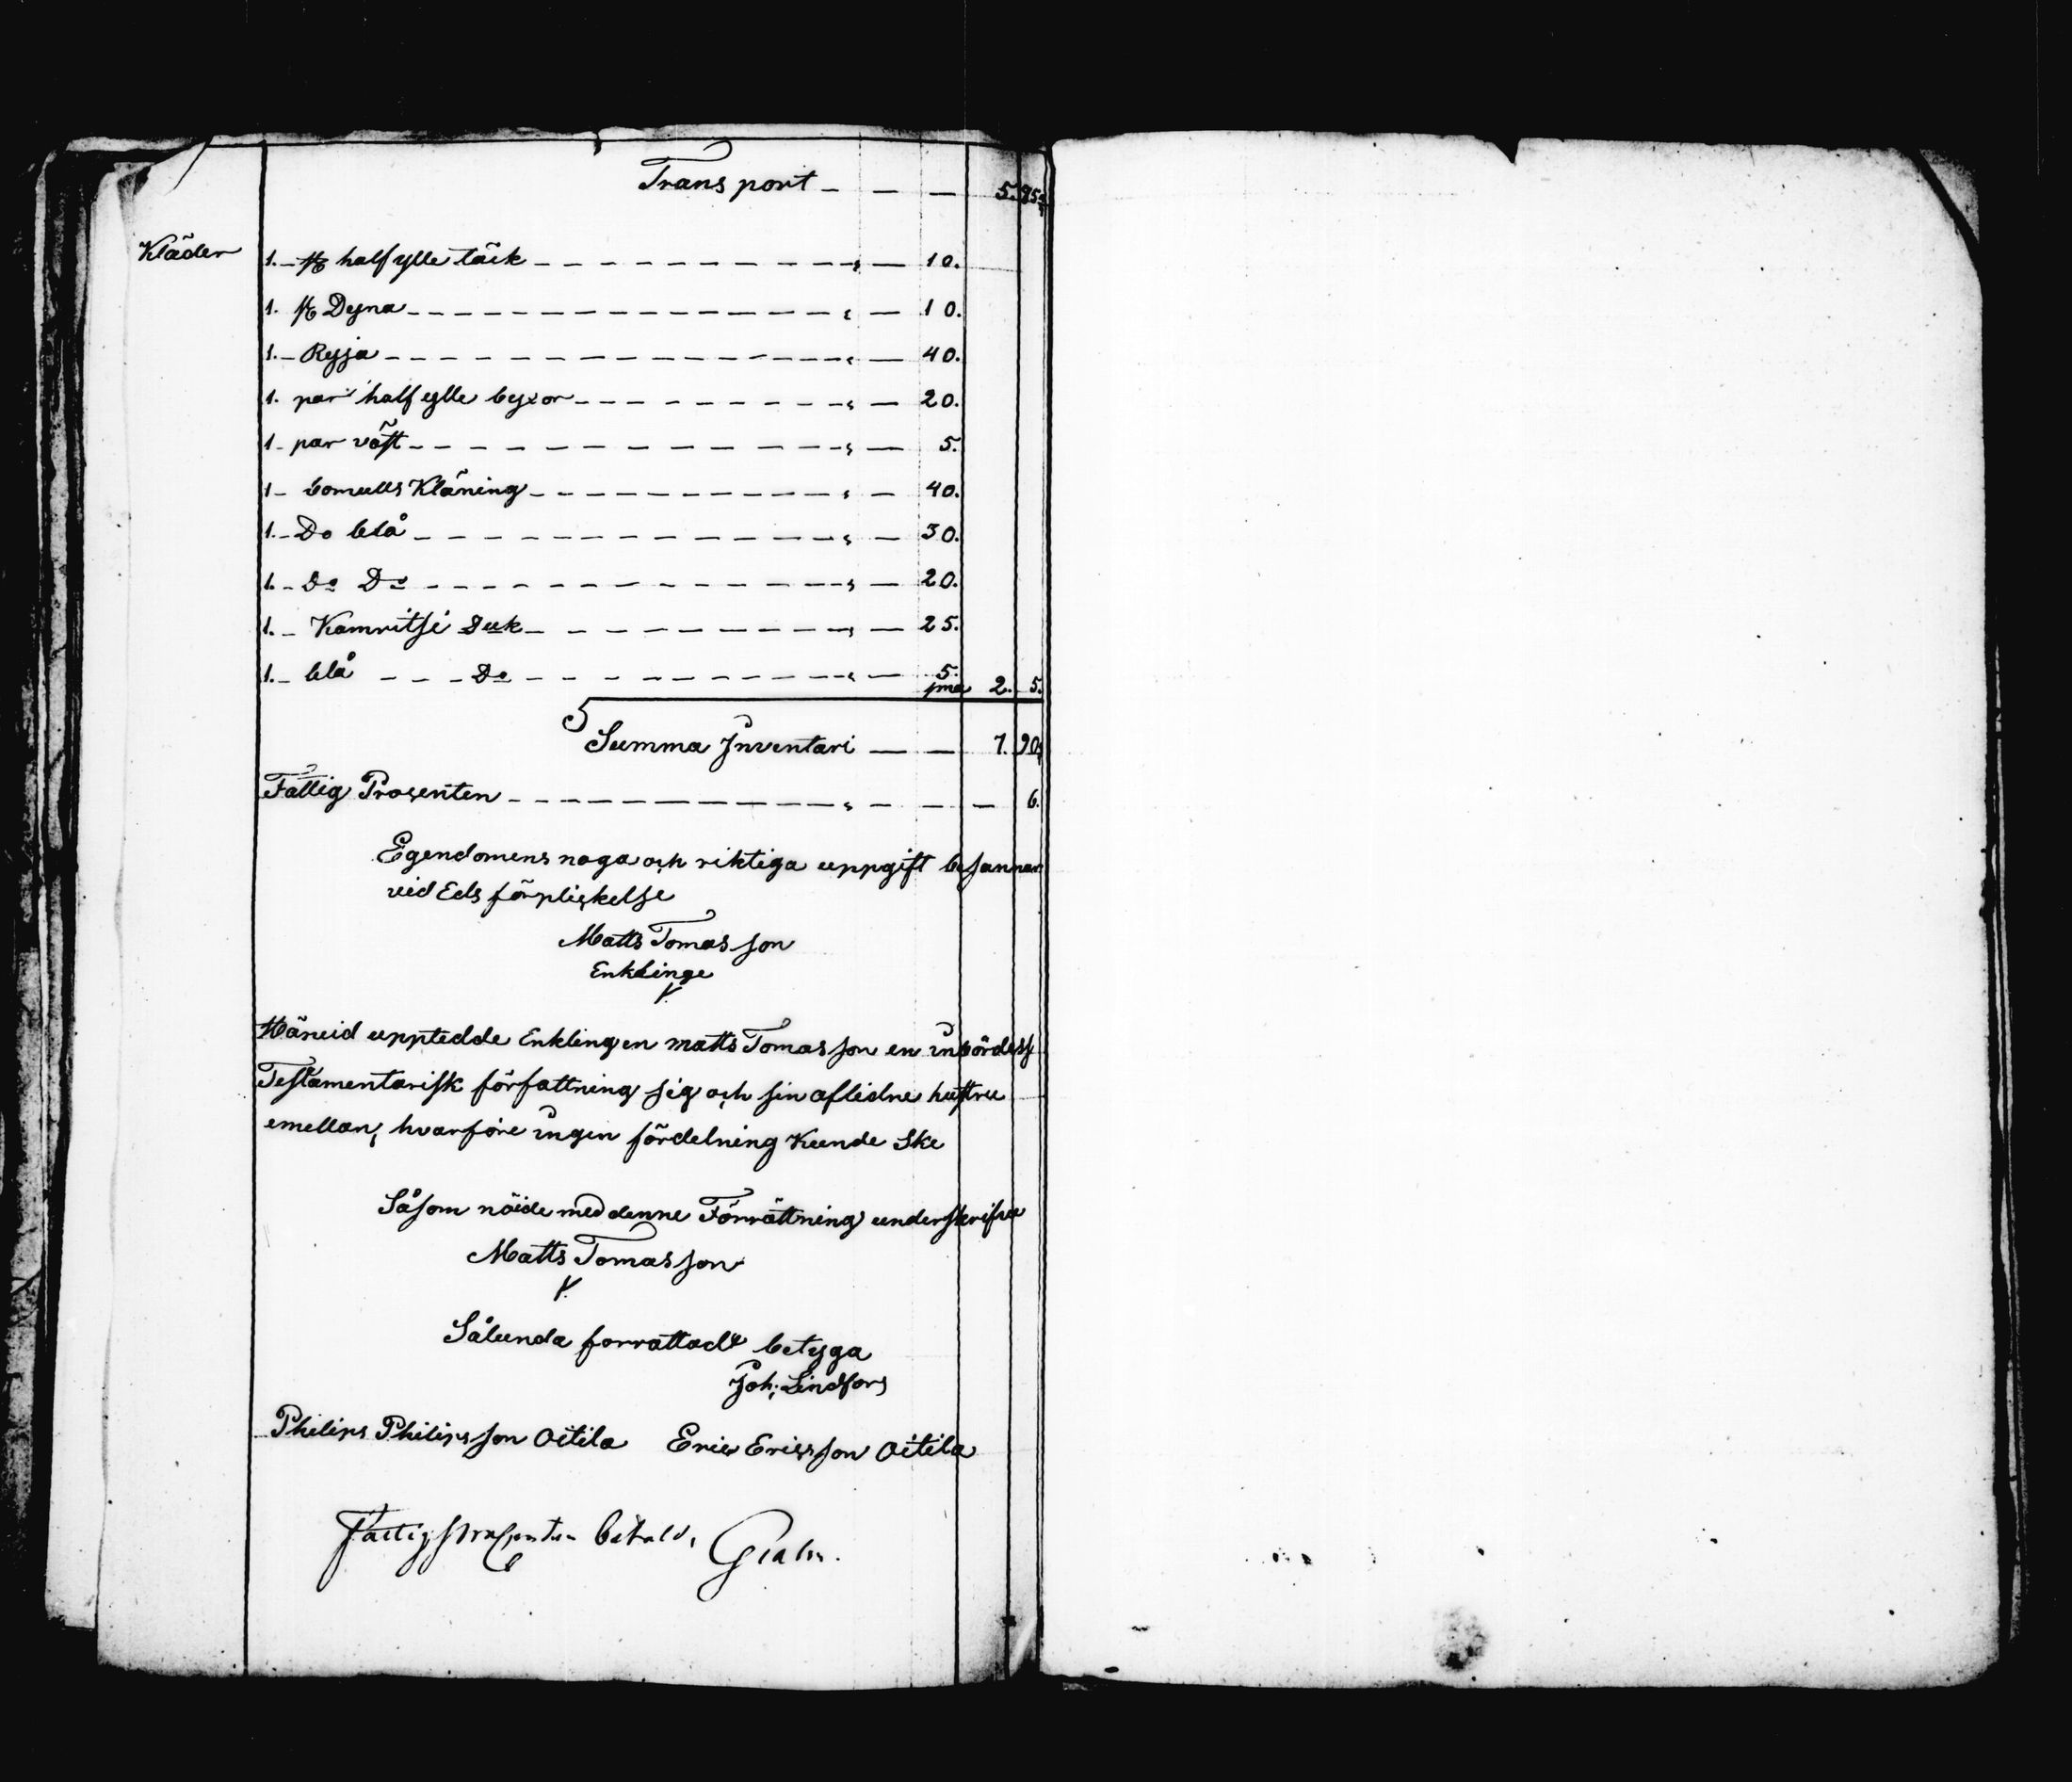 Transport – – – 5. 85¾
Kläder 1. – st halfylle täck – – – " – 10.
1. st Dyna – – – " – 10.
1. – Ryja – – – " – 40.
1. par halfylle byxor – – – " – 20.
1 – par väst – – – " – 5.
1 – bomulls Kläning – – – " – 40.
1. – Do blå – – – " – 30.
1. – Do Do – – – " – 20.
1. – Kamritsi Duk – – – " – 25.
1. – blå – – – Do – – – " – 5.
sma 2. 5.
Summa Inventari – – 7. 90¾
Fattig Prosenten – – – " – – – 6.
Egendomens noga och riktiga uppgift besannar
vid Eds förplickelse
Matts Tomasson
Enklinge
Härvid upptedde Enklingen matts Tomasson en inbördess
Testamentarisk författning sig och sin aflidne hustru
emellan, hvarföre ingen fördelning Kunde Ske
Såsom nöide med denne Förrättning underskrifva
Matts Tomasson
Sålunda forrattade betyga
Joh: Lindfors
Philips Philipsson Oitila Eric Ericsson Oitila
Fattigprocenten betald,